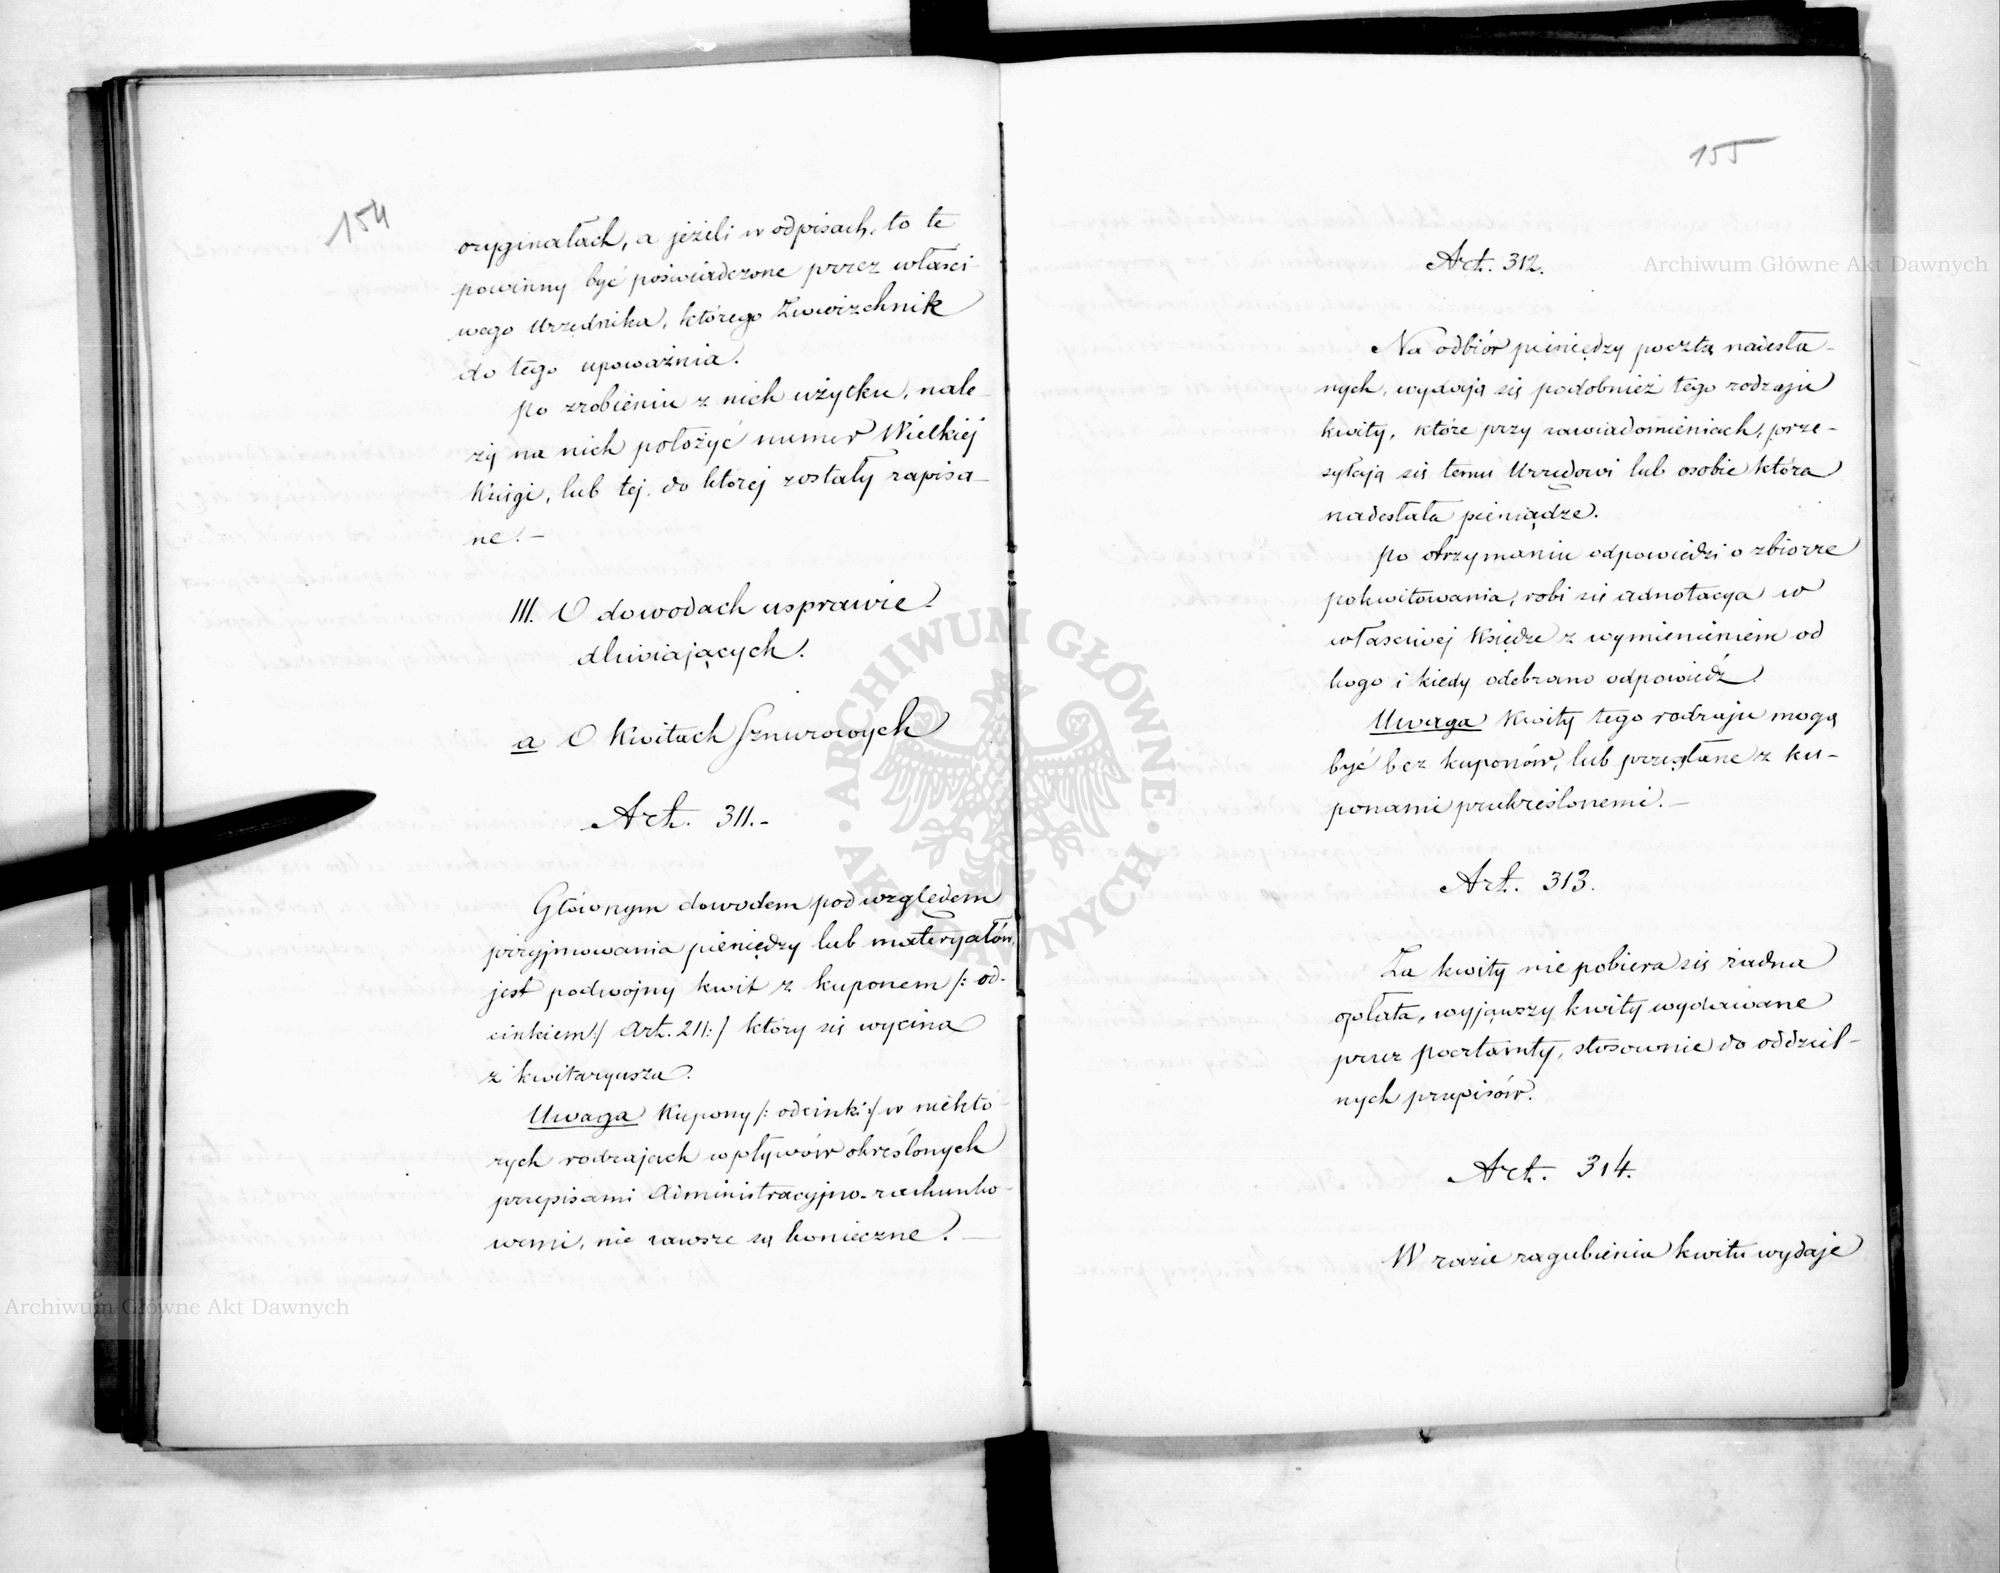 154
oryginałach, a jeżeli w odpisach, to te
powinny być poświadczone przez właści-
wego Urzędnika, którego Zwierzchnik
do tego upoważnia.
Po zrobieniu z nich użytku, nale-
ży na nich położyć numer Wielkiej
Księgi, lub tej, do której zostały zapisa-
ne. –
III. O dowodach usprawie-
dliwiających.
a O Kwitach Sznurowych
Art. 311. –
Głównym dowodem pod względem
przyjmowania pieniędzy lub materyałów,
jest podwójny kwit z kuponem /: od-
cinkiem :/ Art. 211 :/ który się wycina
z kwitaryusza.
Uwaga Kupony /: odcinki :/ w niektó-
rych rodzajach wpływów określonych
przepisami Administracyjno-rachunko-
wemi, nie zawsze są konieczne. –
155
Art. 312.
Na odbiór pieniędzy pocztą nadesła-
nych, wydają się podobnież tego rodzaju
kwity, które przy zawiadomieniach, prze-
syłają się temu Urzędowi lub osobie która
nadesłała pieniądze.
Po otrzymaniu odpowiedzi o zbiorze
pokwitowania, robi się adnotacya w
właściwej Księdze z wymienieniem od
kogo i kiedy odebrano odpowiedź.
Uwaga Kwity tego rodzaju mogą
być bez kuponów, lub przesłane z ku-
ponami przekreślonemi. –
Art. 313.
Za kwity nie pobiera się żadna
opłata, wyjąwszy kwity wydawane
przez Pocztamty, stosownie do oddziel-
nych przepisów.
Art. 314.
W razie zagubienia kwitu wydaje
Archiwum Główne Akt Dawnych
Archiwum Główne Akt Dawnych
ARCHIWUM GŁÓWNE AKT DAWNYCH